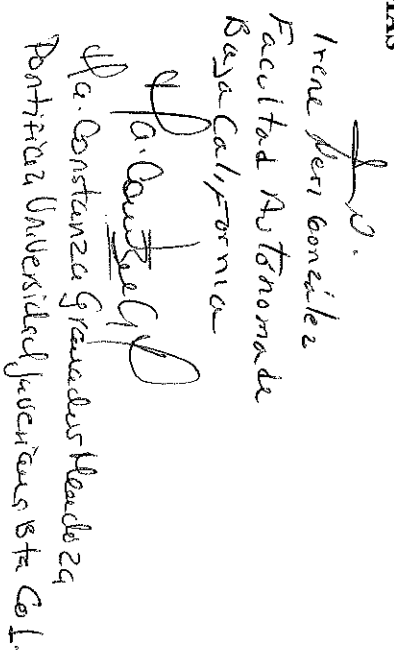 IAS
Irene Neri González
Facultad Autónoma de
Baja California
Ma. Constanza Granados Mendoza
Pontificia Universidad Javeriana Bta Col.